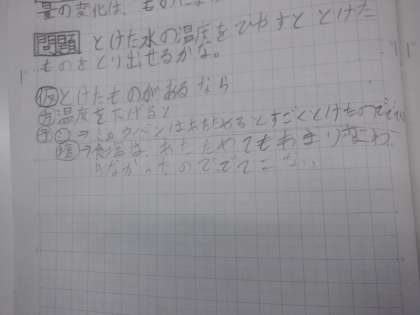 量の変化は、ものによ
問題 とけた水の温度をひやすと とけた
ものをとり出せるかな。
とけたものがあるなら
温度を下げると
ミョウバンはあたためるとすごくとけたので
→食塩は、あたためてもあまりかわ
らなかったのででてこない。